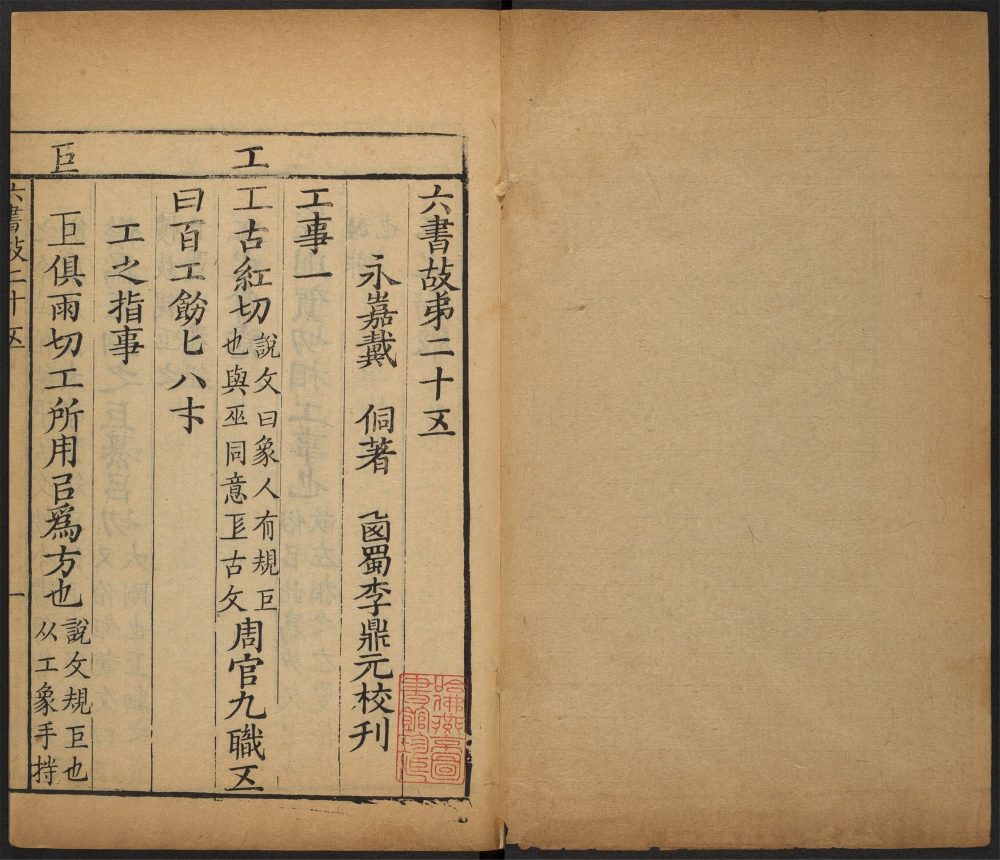 工
巨
六書故弟二十五
永嘉戴　侗著　鹵蜀李鼎元校刊
工事一
工古紅切說文曰象人有規巨也與巫同意𢒄古文周官九職五
曰百工飭匕八才
工之指事
巨俱雨切工所用㠯爲方也說文規巨也从工象手持
六書故二十五
一
哈佛燕京圖書館珍藏印